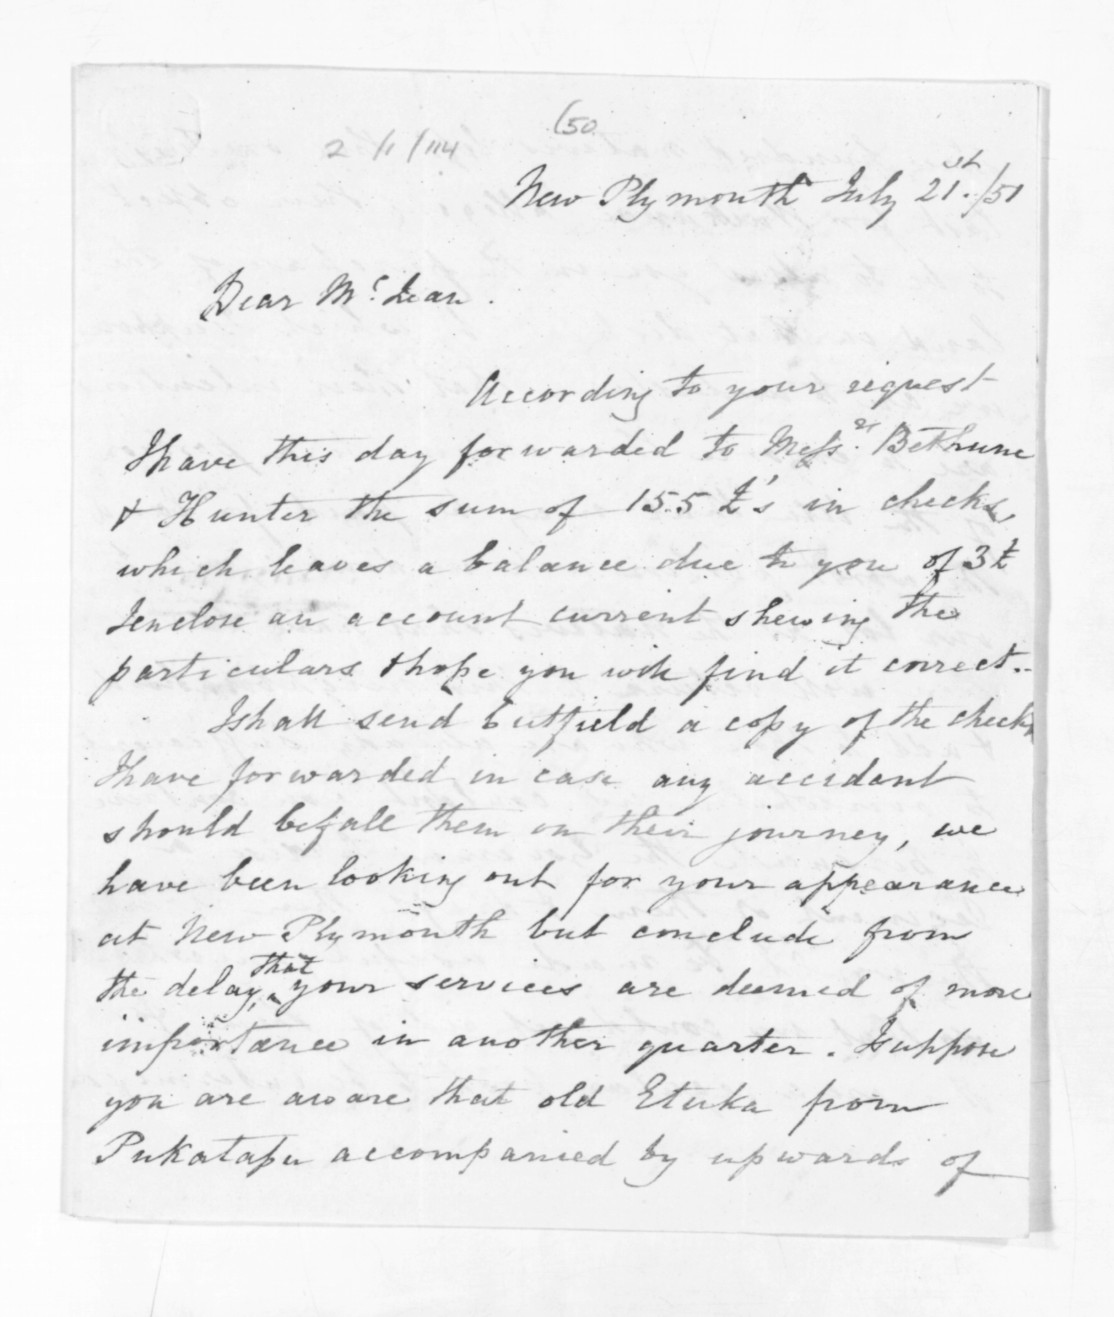 (50
2/1/114
New Plymouth July 21st./51
Dear McLean.
According to your request
I have this day forwarded to Messrs. Bethune
& Hunter the sum of 155 £'s in checks,
which leaves a balance due to you of 3£
I enclose an account current shewing the
particulars & hope you will find it correct.
I shall send Cutfield a copy of the checks
I have forwarded in case any accident
should befall them on their journey, we
have been looking out for your appearance
at New Plymouth but conclude from
the delay, that your services are deemed of more
importance in another quarter. I suppose
you are aware that old Etuka from
Pukatapu accompanied by upwards of